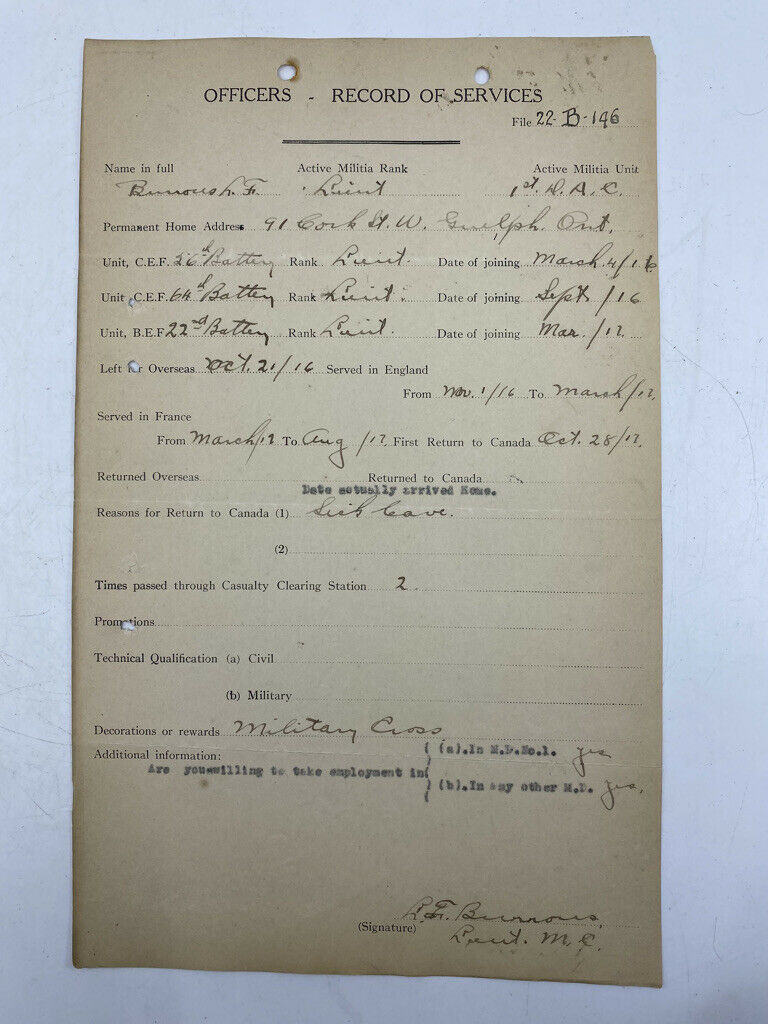 OFFICERS - RECORD OF SERVICES
File 22-B-146
Name in full Active Militia Rank Active Militia Unit
Burrows L. F. Lieut 1st. D. A. C.
Permanent Home Address 91 Cork St. W. Guelph. Ont.
Unit, C.E.F. 56th Battery Rank Lieut. Date of joining March 4/16
Unit C.E.F. 64th Battery Rank Lieut. Date of joining Sept /16
Unit, B.E.F. 22nd Battery Rank Lieut. Date of joining Mar. /17
Left for Overseas Oct. 21/16 Served in England
From Nov. 1/16 To March/17.
Served in France
From March/17 To Aug /17. First Return to Canada Oct. 28/17.
Returned Overseas Returned to Canada
Date actually arrived Home.
Reasons for Return to Canada (1) Sick Leave.
(2)
Times passed through Casualty Clearing Station 2
Promotions
Technical Qualification (a) Civil
(b) Military
Decorations or rewards Military Cross
Additional information: (a).In M.D.No.1. yes
Are you willing to take employment in
(b).In any other M.D. yes.
L. F. Burrows,
(Signature) Lieut. M.C.